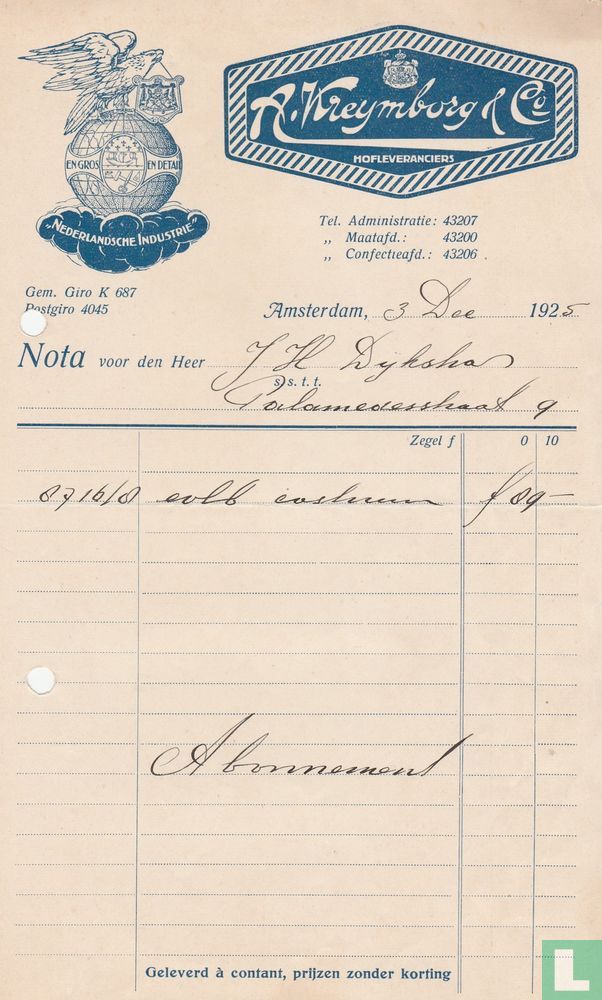 A. Kreymborg & Co
HOFLEVERANCIERS
EN GROS EN DETAIL
„NEDERLANDSCHE INDUSTRIE"
Tel. Administratie: 43207
„ Maatafd.: 43200
„ Confectieafd.: 43206
Gem. Giro K 687
Postgiro 4045
Amsterdam, 3 Dec 1925
Nota voor den Heer J H Dykstra
s.s.t.t.
Palamedesstraat 9
Zegel f 0 10
8716/8 costuum f 89-
Abonnement
Geleverd à contant, prijzen zonder korting
L